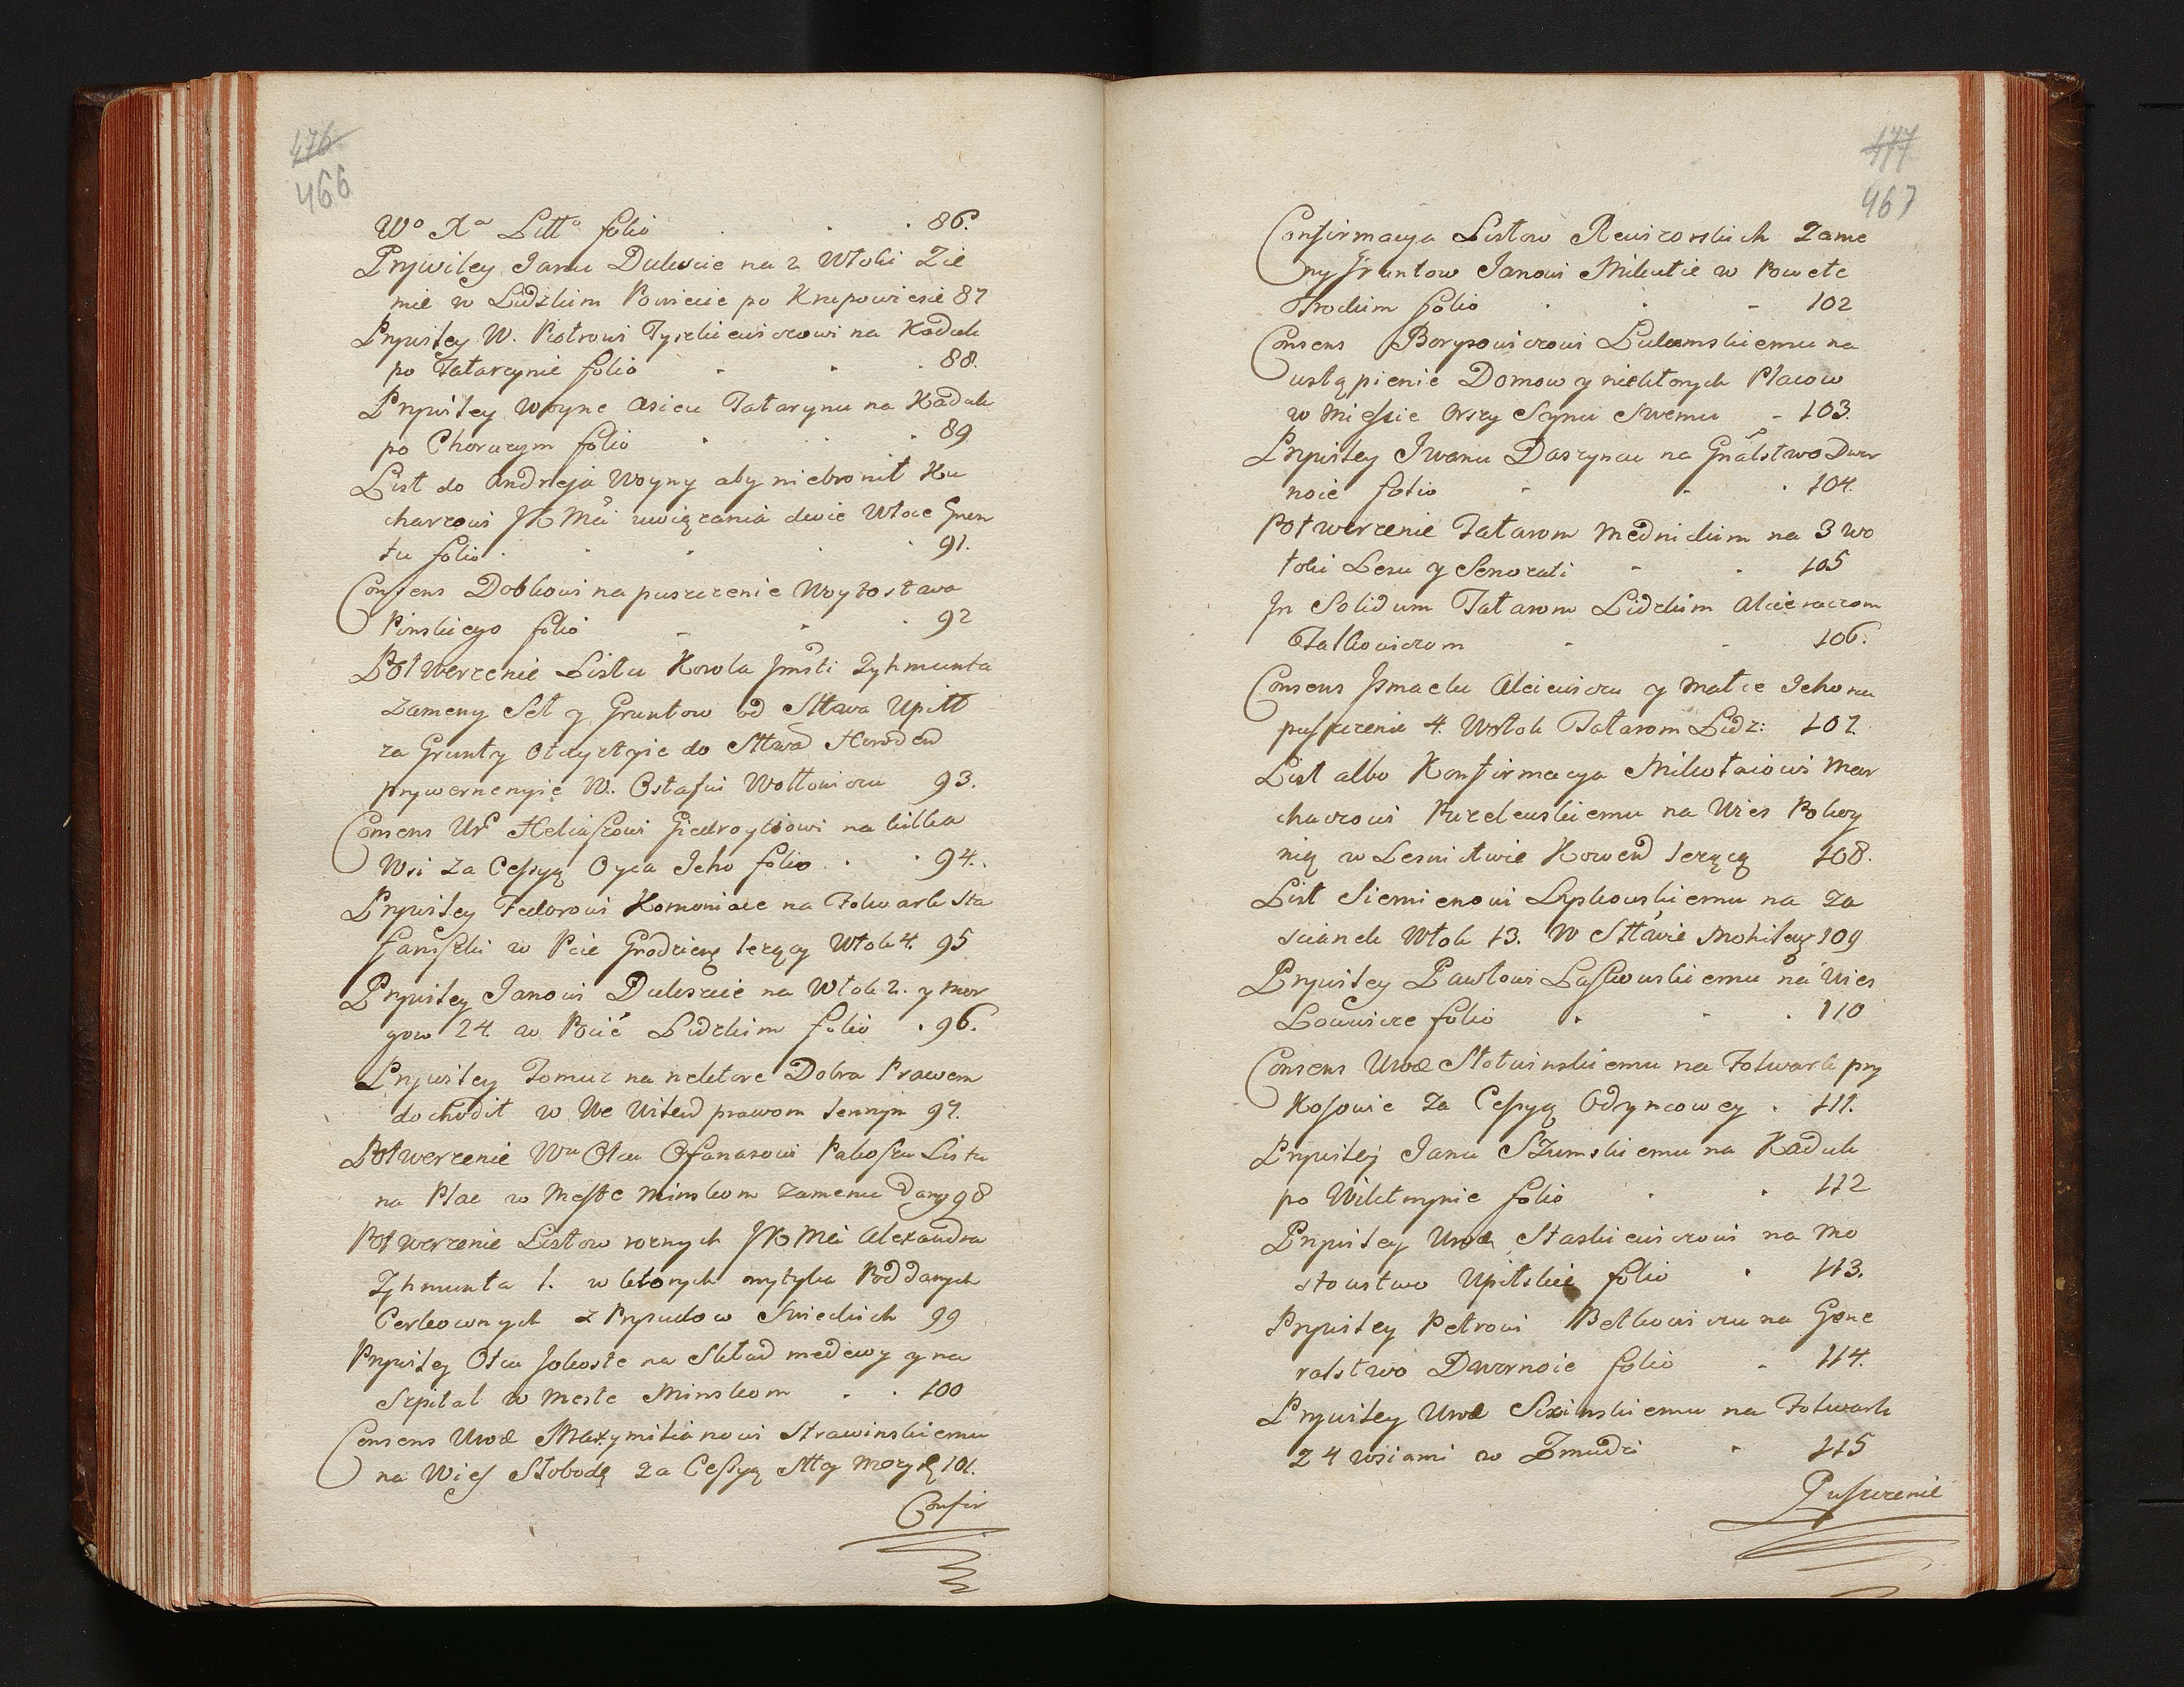 476
466
Wo Xa Litto folio . . . 86.
Prywiley Janu Dulewie na 2 Włoki Zie
mie w Lidzkim Powiecie po Krupowiesie 87
Prywiley W. Piotrowi Tyszkiewiczowi na Kaduk
po Tatarzynie folio . . . 88.
Prywiley Woyne Asieu Tatarynu na Kaduk
po Chorucym folio . . . 89
List do Andreja Woyny aby niebronił Ku
charzowi JKMci uwiązania dwie Włoce Grun
tu folio . . . . 91.
Consens Dobkowi na puszczenie Woytostwa
Pinskiego folio - . . 92
Potwerzenie Listu Korola Jmsti Zyhmunta
zameny Seł y Gruntow od Sttwa Upitt
za Grunty Otczystyie do Sttwa Howend
prywernenyie W. Ostafiu Wołłowiczu 93.
Consens Ur Heliaszowi Giedroytiowi na kilka
Wsi za Cessyą Oyca Jeho folio . . 94.
Prywiley Fedorowi Komoniace na Folwark Sta
fanszki w Pcie Grodzieng lezący Włok 4. 95
Prywiley Janowi Dulewicie na Włok 2. y mor
gow 24 w Pcie Lidzkim folio . 96.
Prywiley Tomuz na nektore Dobra Prawem
dochodit w We Witend prawom lennym 97.
Potwerzenie Wu Otcu Ofanasowi Pakoszu Listu
na Plac w Meste Minskom zamenu Dany 98
Potwerzenie Listow roznych JKMci Alexandra
Zyhmunta 1. w ktorych mytyka Poddanych
Cerkownych z Prysudow Swieckich 99
Prywiley Otcu Jolkoste na Skład medowy y na
Szpital w Meste Minskom . . 100
Consens Urod Maxymilianowi Strawinskiemu
na Wies Słobodę za Cessyą Stty Mozyr 101.
Confir
477
467
Confirmacya Listow Rewizorskich Zame
ny Gruntow Janowi Mikutie w Powete
Trockim folio . . - 102
Consens Borysowiczowi Lukomskiemu na
ustąpienie Domow y niektorych Placow
w Miescie Orszy Synu Swemu - 103.
Prywiley Iwanu Daszyncu na Gnalstwo Dwor
noie folio - - . 104.
Potwerzenie Tatarom Mednickim na 3 wo
łoki Lesu y Senozati - . 105
In Solidum Tatarom Lidzkim Alcieiaczom
Talkowiczom - - 106.
Consens Ismaelu Alciewiczu y Matce Jeho na
puszczenie 4. Wołok Tatarom Lidz: 107.
List albo Konfirmacya Mikołaiowi Mar
chaczowi Puzelewskiemu na Wies Pokoy
nią w Lesnictwie Kowend lezącą 108.
List Siemienowi Lyskowskiemu na Za
scianek Włok 13. W Sttwie Mohileg 109
Prywiley Pawłowi Laskowskiemu na Wies
Lowwicze folio . - . 110
Consens Urod Słotwinskiemu na Folwark pry
Kosowie za Cessyą Odyncowey . 111.
Prywiley Janu Szumskiemu na Kaduk
po Wilktnynie folio . . 112
Prywiley Urod Staskiewiczowi na Mo
stowstwo Upitskie folio . 113.
Prywiley Petrowi Petkowiczu na Gene
ralstwo Dwornoie folio - 114.
Prywiley Urod Sizinskiemu na Folwark
z 4 wsiami w Zmudzi - 115
Puszczenie